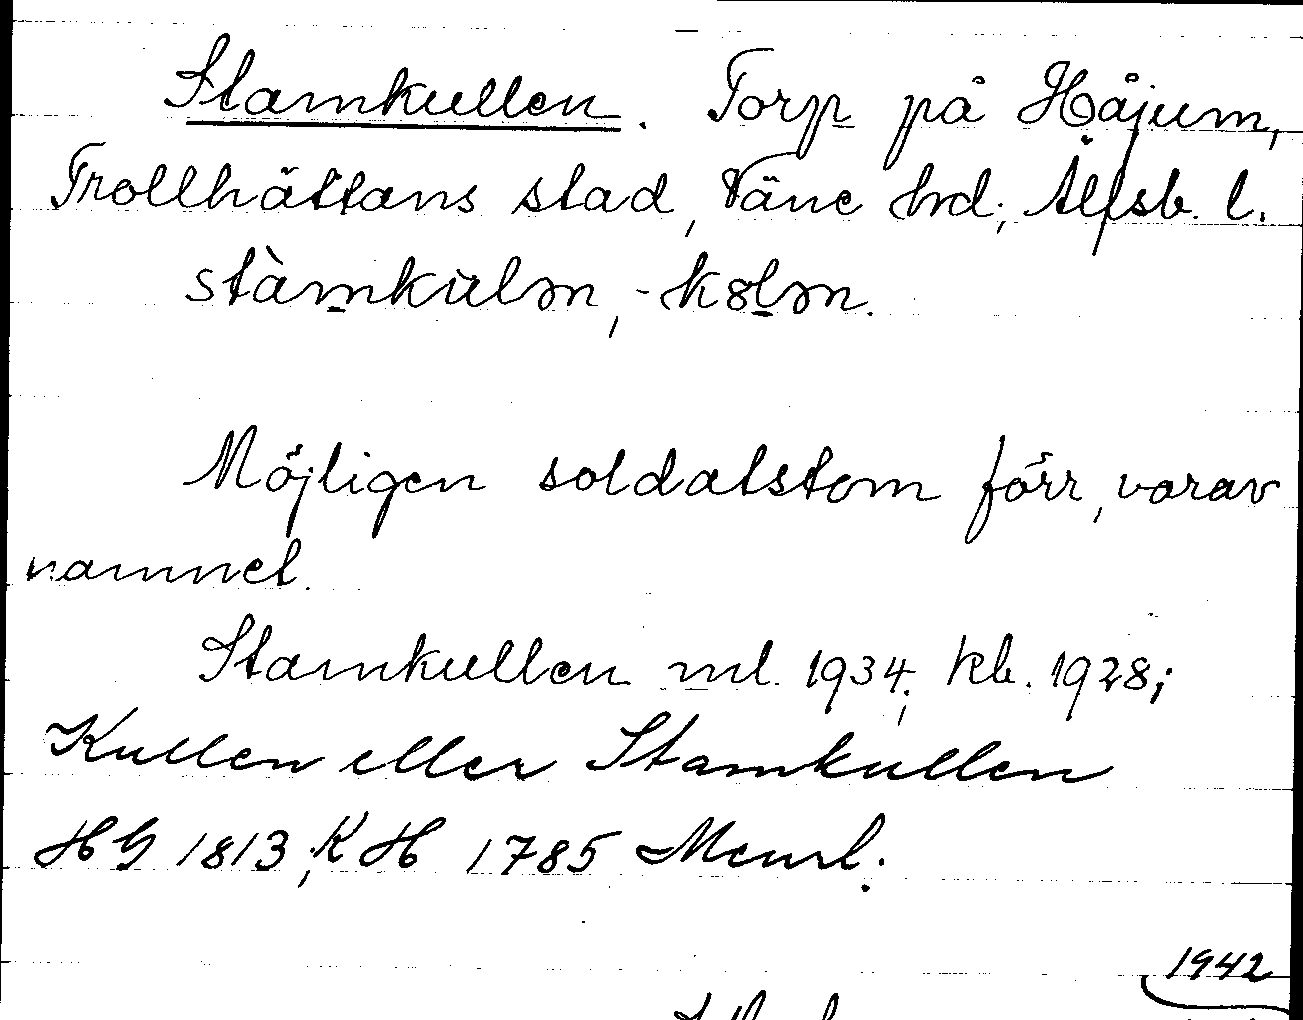 Stamkullen. Torp på Håjum,
Trollhättans stad, Väne hrd; Älfsb. l.
stàmkuln, -køln.
Möjligen soldatstom förr, varav
namnet.
Stamkullen ml. 1934; kb. 1928;
Kullen eller Stamkullen
HG 1813, KH 1785
1942